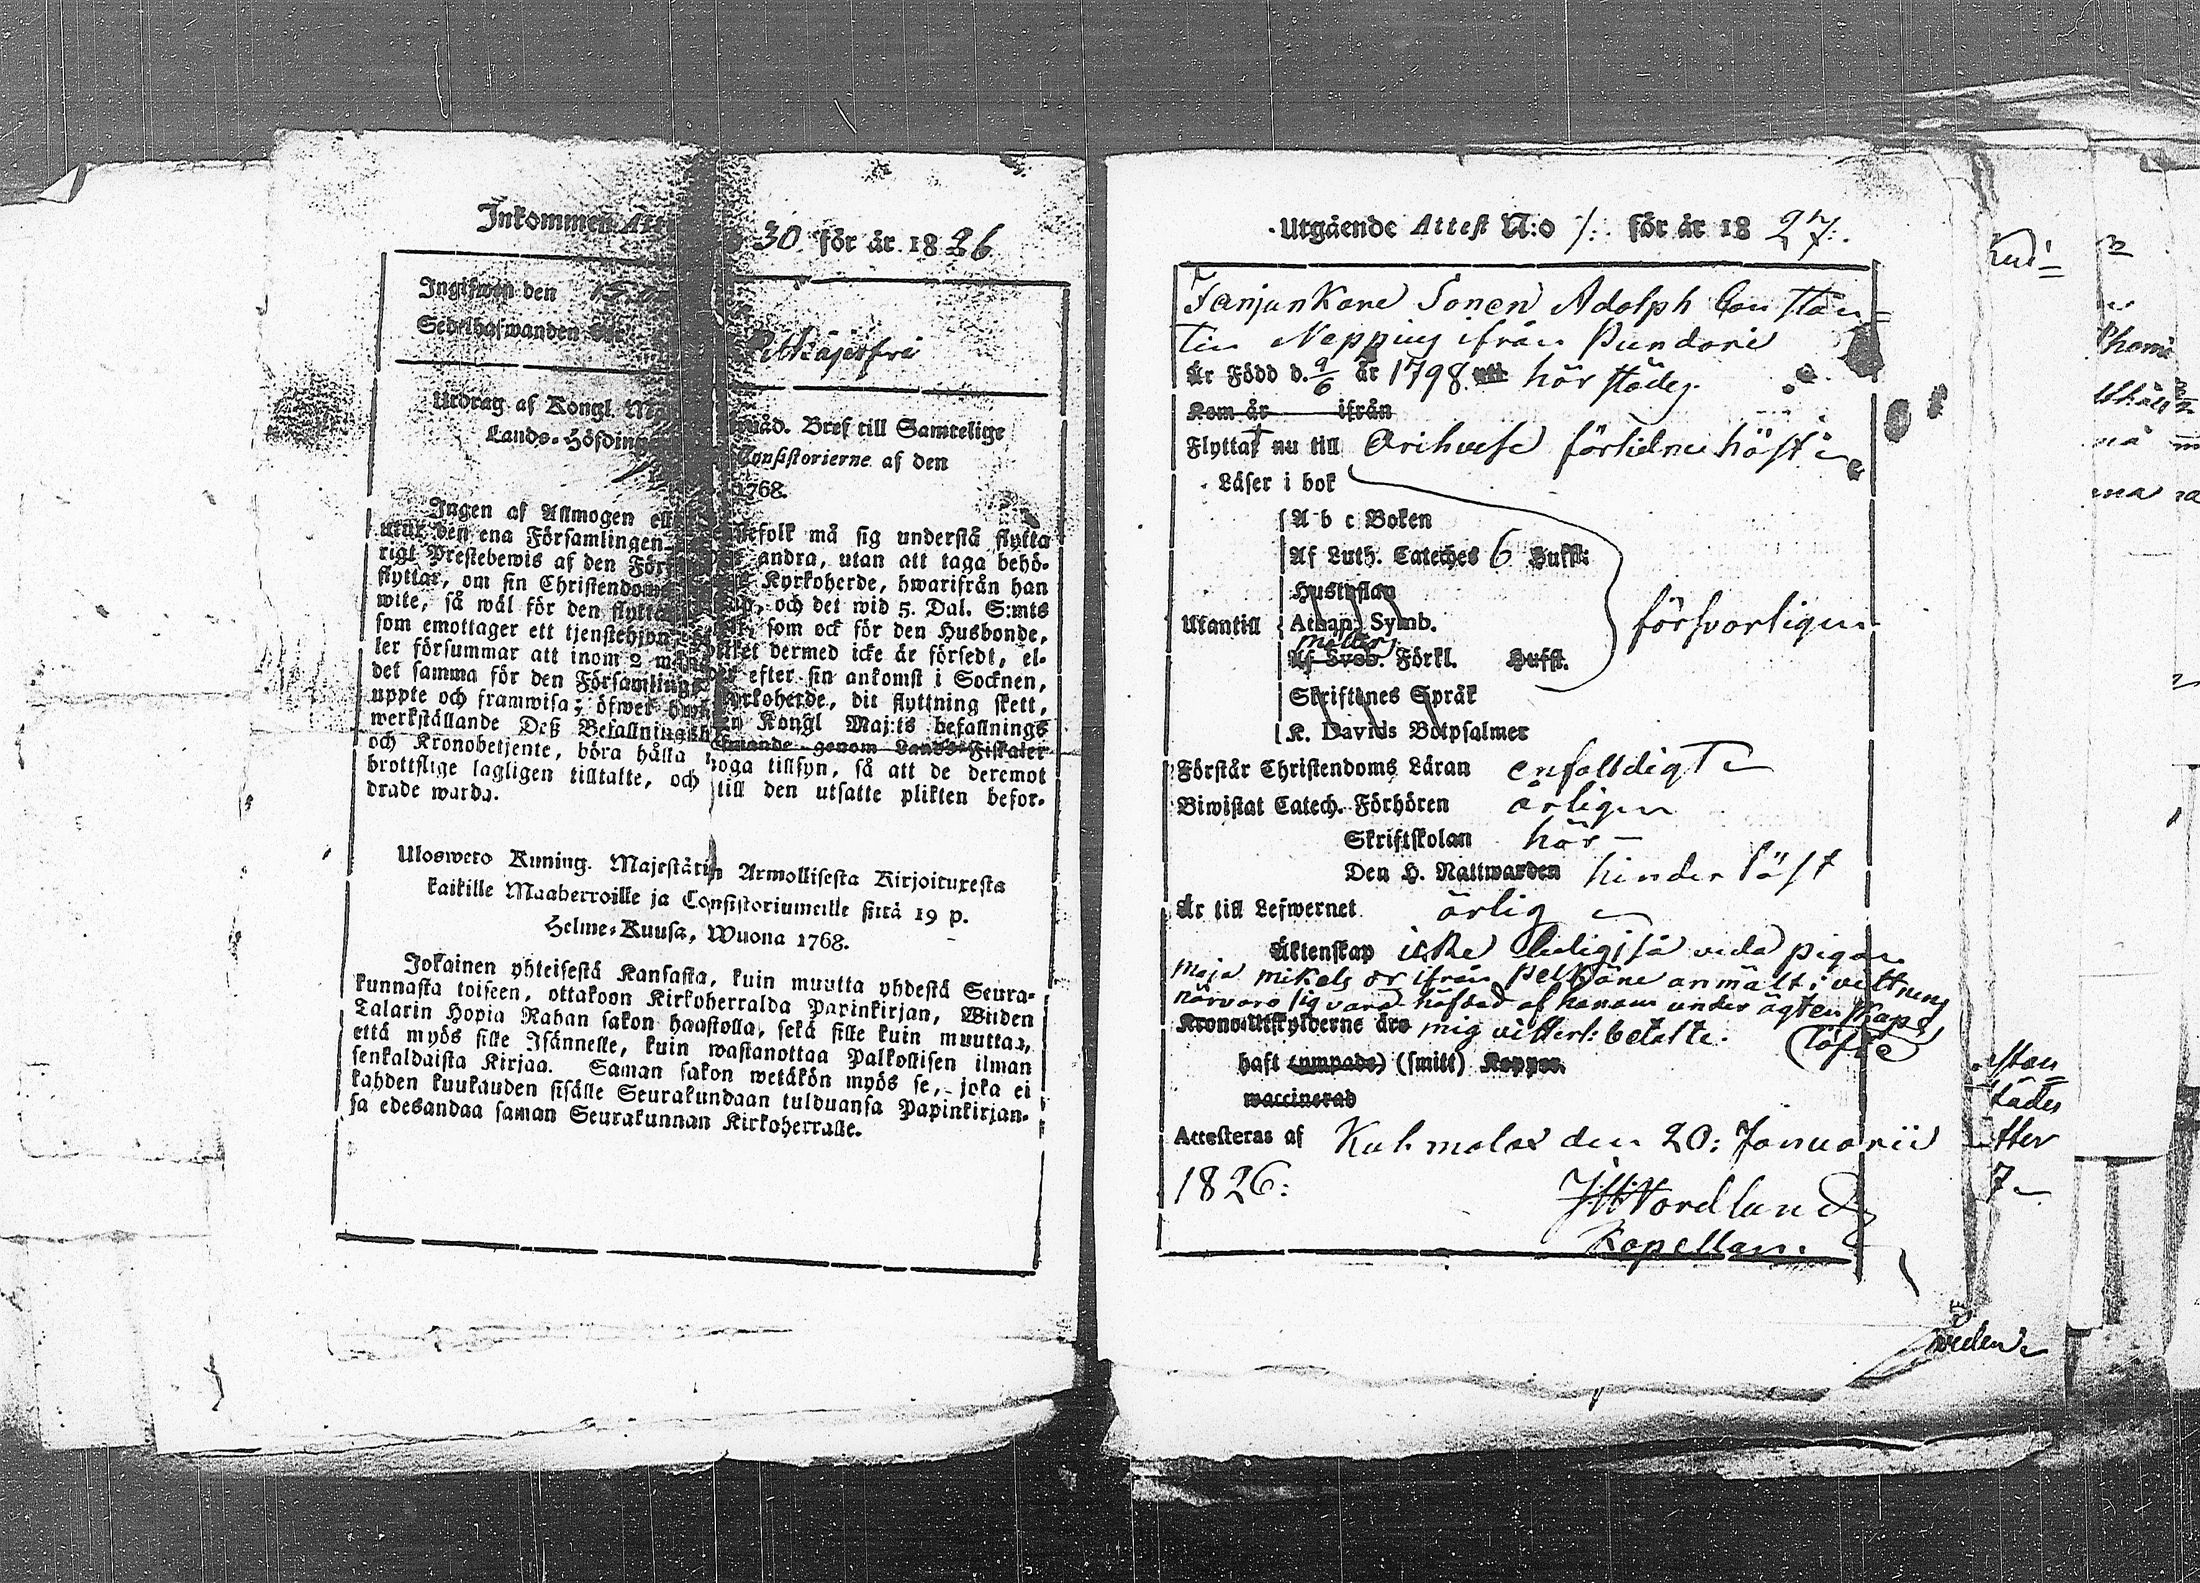 Inkommen Atte
30 för år 1826
Ingifwen den
Sedelhafwanden
Utdrag af Kongl. Ma
nåd. Bref till Samtelige
Lands-Höfding
Consistorierne af den
1768.
Ingen af Allmogen ell
efolk må sig understå flytta
utur den ena Församlingen
andra, utan att taga behö-
rigt Prestebewis af den För
Kyrkoherde, hwarifrån han
flyttar, om sin Christendoms
och det wid 5. Dal. S:mts
wite, så wäl för den flytta
som ock för den Husbonde,
som emottager ett tjenstehjon
dermed icke är försedt, el-
ler försummar att inom 2 mån
efter sin ankomst i Socknen,
det samma för den Församlings
Kyrkoherde, dit flyttning skett,
uppte och framwisa; öfwer
Kongl Maj:ts befallnings
werkställande Deß Befallningsh
afwande genom Lands-Fiskaler
och Kronobetjente, böra hålla noga tillsyn, så att de deremot
brottslige lagligen tilltalte, och till den utsatte plikten befor-
drade warda.
Uloswero Kuning. Majestätin Armollisesta Kirjoituxesta
kaikille Maaherroille ja Consistoriumeille siitä 19 p.
Helme-Kuusa, Wuona 1768.
Jokainen yhteisestä Kansasta, kuin muutta yhdestä Seura-
kunnasta toiseen, ottakoon Kirkoherralda Papinkirjan, Wiiden
Talarin Hopia Rahan sakon haastolla, sekä sille kuin muuttaa,
että myös sille Isännelle, kuin wastanottaa Palkollisen ilman
senkaldaista Kirjaa. Saman sakon wetäkön myös se, joka ei
kahden kuukauden sisälle Seurakundaan tulduansa Papinkirjan-
sa edesandaa saman Seurakunnan Kirkoherralle.
Utgående Attest N:o 1: för år 1827:
Fanjunkare Sonen Adolph Constan=
tin Nepping ifrån Pundari
Är Född d. 9/6 år 1798. utt härstädes.
Kom år ifrån
Flyttat nu till Orihvesi förlidne höst
Läser i bok
A b c Boken
Af Luth. Cateches 6 Hufst:
Hustaflan
Utantill Athan. Symb. försvarligen
Af Sveb. Förkl. Hufst.
Skriftenes Språk
K. Davids Botpsalmer
Förstår Christendoms Läran enfaldigt
Biwistat Catech. Förhören årligen
Skriftskolan här
Den H. Nattwarden hinderlöst
Är till Lefwernet ärlig
Äktenskap icke ledig, så vida pigan
Maja Mikels dr ifrån Pelkäne anmält i vittnens
närvaro sig vara häfdad af honom under ägtenskaps
löfte
Krono-Utskylderne äro mig vitterl: betalte.
haft (ympade) (smitt) Koppor.
waccinerad
Attesteras af Kuhmalax den 20: Januarii
1826:
Nordlund
Kapellan.